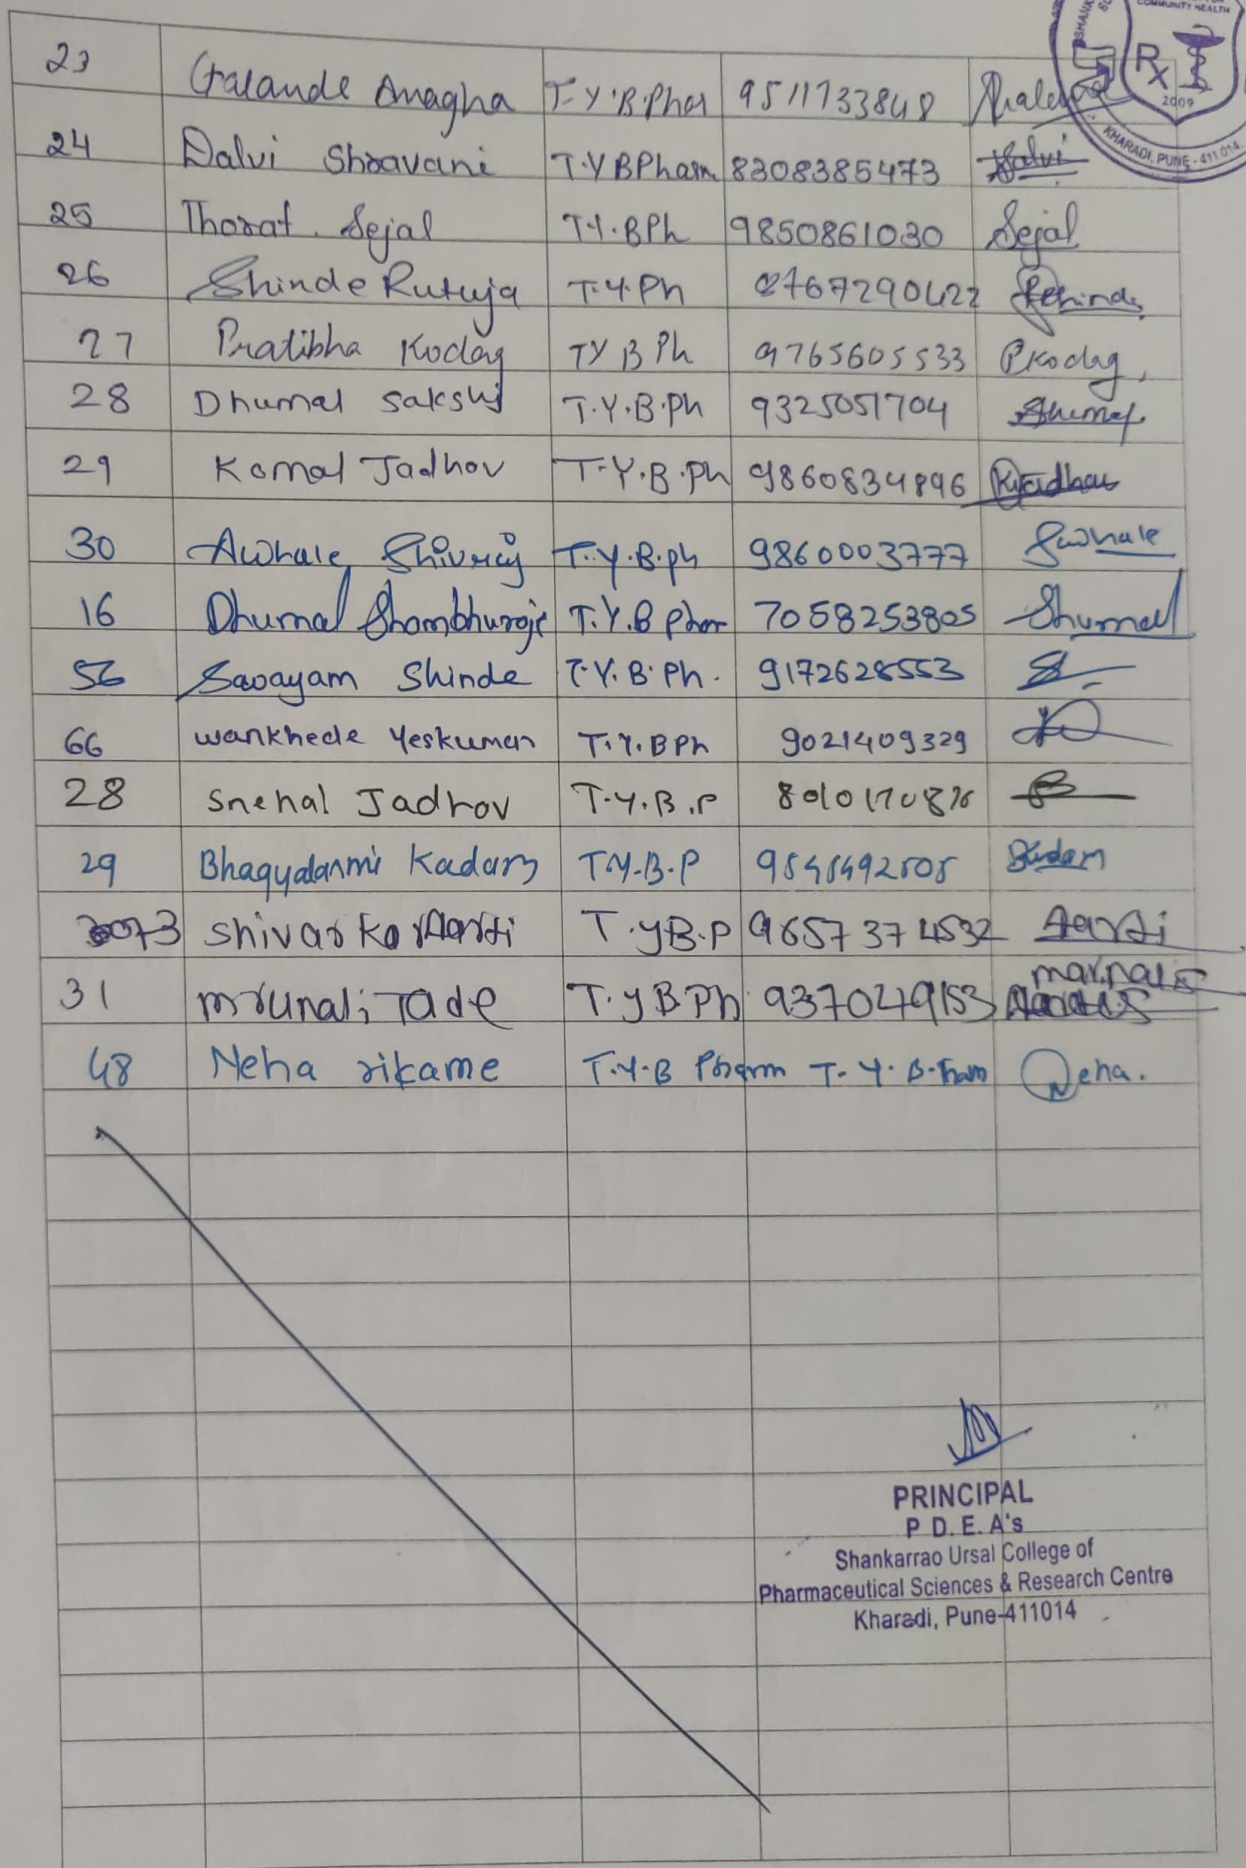 COMMUNITY HEALTH
SHANK
Rx
2009
KHARADI, PUNE - 411 014.
23 Galande Anagha T.Y.B.Phar 9511733848
24 Dalvi Shravani T.Y BPharm 8308385473 Dalvi
25 Thorat Sejal T.Y.BPh 9850861030 Sejal
26 Shinde Rutuja T.Y.Ph 8767290422
27 Pratibha Kodag TY B Ph 9765605533 PKodag,
28 Dhumal Sakshi T.Y.B.Ph 9325051704 Dhumal
29 Komal Jadhav T.Y.B.Ph 9860834896 KJadhav
30 Awhale Shivraj T.Y.B.ph 9860003777 Sawhale
16 Dhumal Shambhuraje T.Y.B phar 7058253805 Dhumal
56 Savayam Shinde T.Y.B.Ph. 9172628553
66 wankhede Yeskumar T.Y.BPh 9021409329
28 Snehal Jadhav T.Y.B.P
29 Kadam T.Y.B.P Kadam
73 Shivarkar Aarti T.YB.P 9657374532 Aarti
31 mrunali Tade T.YB.Ph 937049153
48 Neha rikame T.Y.B Pharm T.Y.B.Pharm Neha.
PRINCIPAL
P D. E. A's
Shankarrao Ursal College of
Pharmaceutical Sciences & Research Centre
Kharadi, Pune-411014